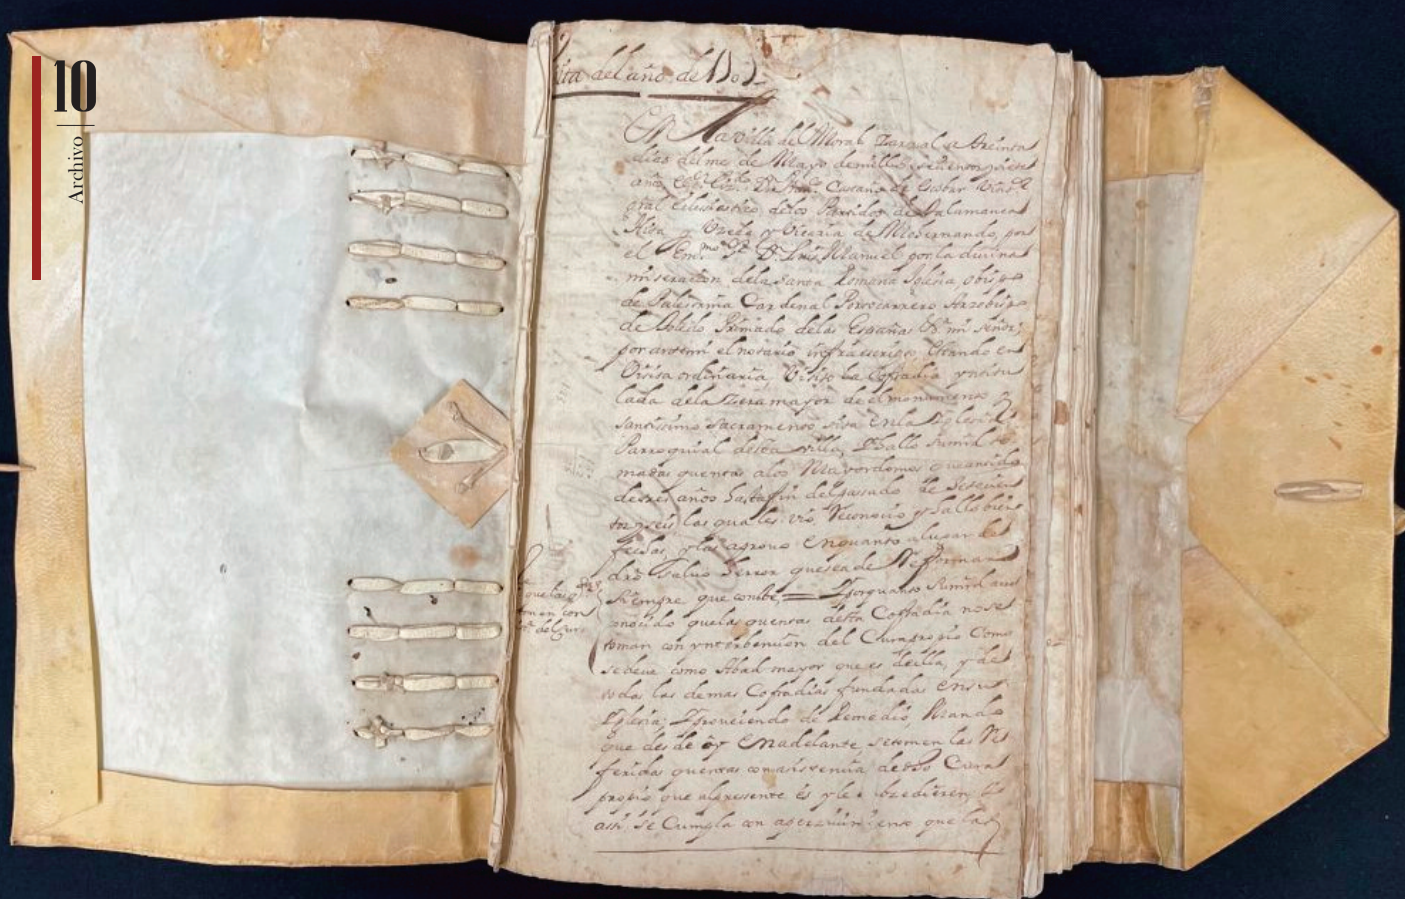 10
Archivo
del año de 1707
En la villa del Moral Zarzal a treinta
dias del mes de Mayo de mill setecientos y siete
años el Sr. Lizdo. Dn. Castaño de Escobar Visitr.
gral eclesiastico de los Partidos de Talamanca
Hita y Uzeda y Vicaria de por
el Emmo. Sr. D. Luis Manuel por la divina
miseracion de la Santa Romana Iglesia, obispo
de Palestrina Cardenal Portocarrero Arzobispo
de Toledo Primado de las Españas mi señor;
por ante mi el notario infraescripto, estando en
Visita ordinaria, Visito la Cofradia ynstitu
lada de la Zera mayor de el monumento
santissimo Sacramento sita en la Iglesia
Parroquial desta villa, Hallo
madas quentas a los Mayordomos que an sido
años hasta fin del passado de Setecien
tos y seis las quales vio Reconocio y hallo bien
fechas, y las aprovo en quanto a lugar de
dro. Salvo herror que sea de Reformar
Siempre que conste = Y por quanto su mrd a
onocido que las quentas desta Cofradia no se
toman con ynterbencion del Cura propio Como
se deve como Abad mayor que es della, y de
todas las demas Cofradias fundadas en su
Iglesia; Y proveiendo de Remedio, Mando
que desde oy en adelante, se tomen las Re
feridas quentas con asistencia de dho Cura
propio que al presente es y le subcedieren, lo
assi se Cumpla con apercivimiento, que las
que las
tomen con
del Cura